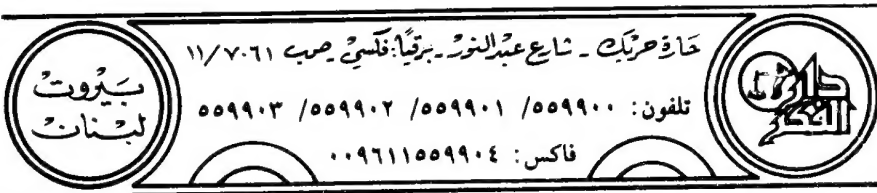 دار الفكر
حَارَة حرَيْك - شارع عَبْد النور - برقيًا: فكسيْ - صرب ١١/٧٠٦١
تلفون: ٥٥٩٩٠٠/ ٥٥٩٩٠١/ ٥٥٩٩٠٢/ ٥٥٩٩٠٣
فاكس: ٠٠٩٦١١٥٥٩٩٠٤
بَيْروت
لبْنان